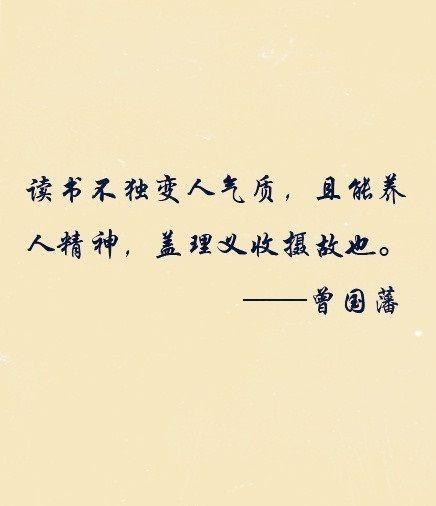 读书不独变人气质，且能养
人精神，盖理义收摄故也。
——曾国藩